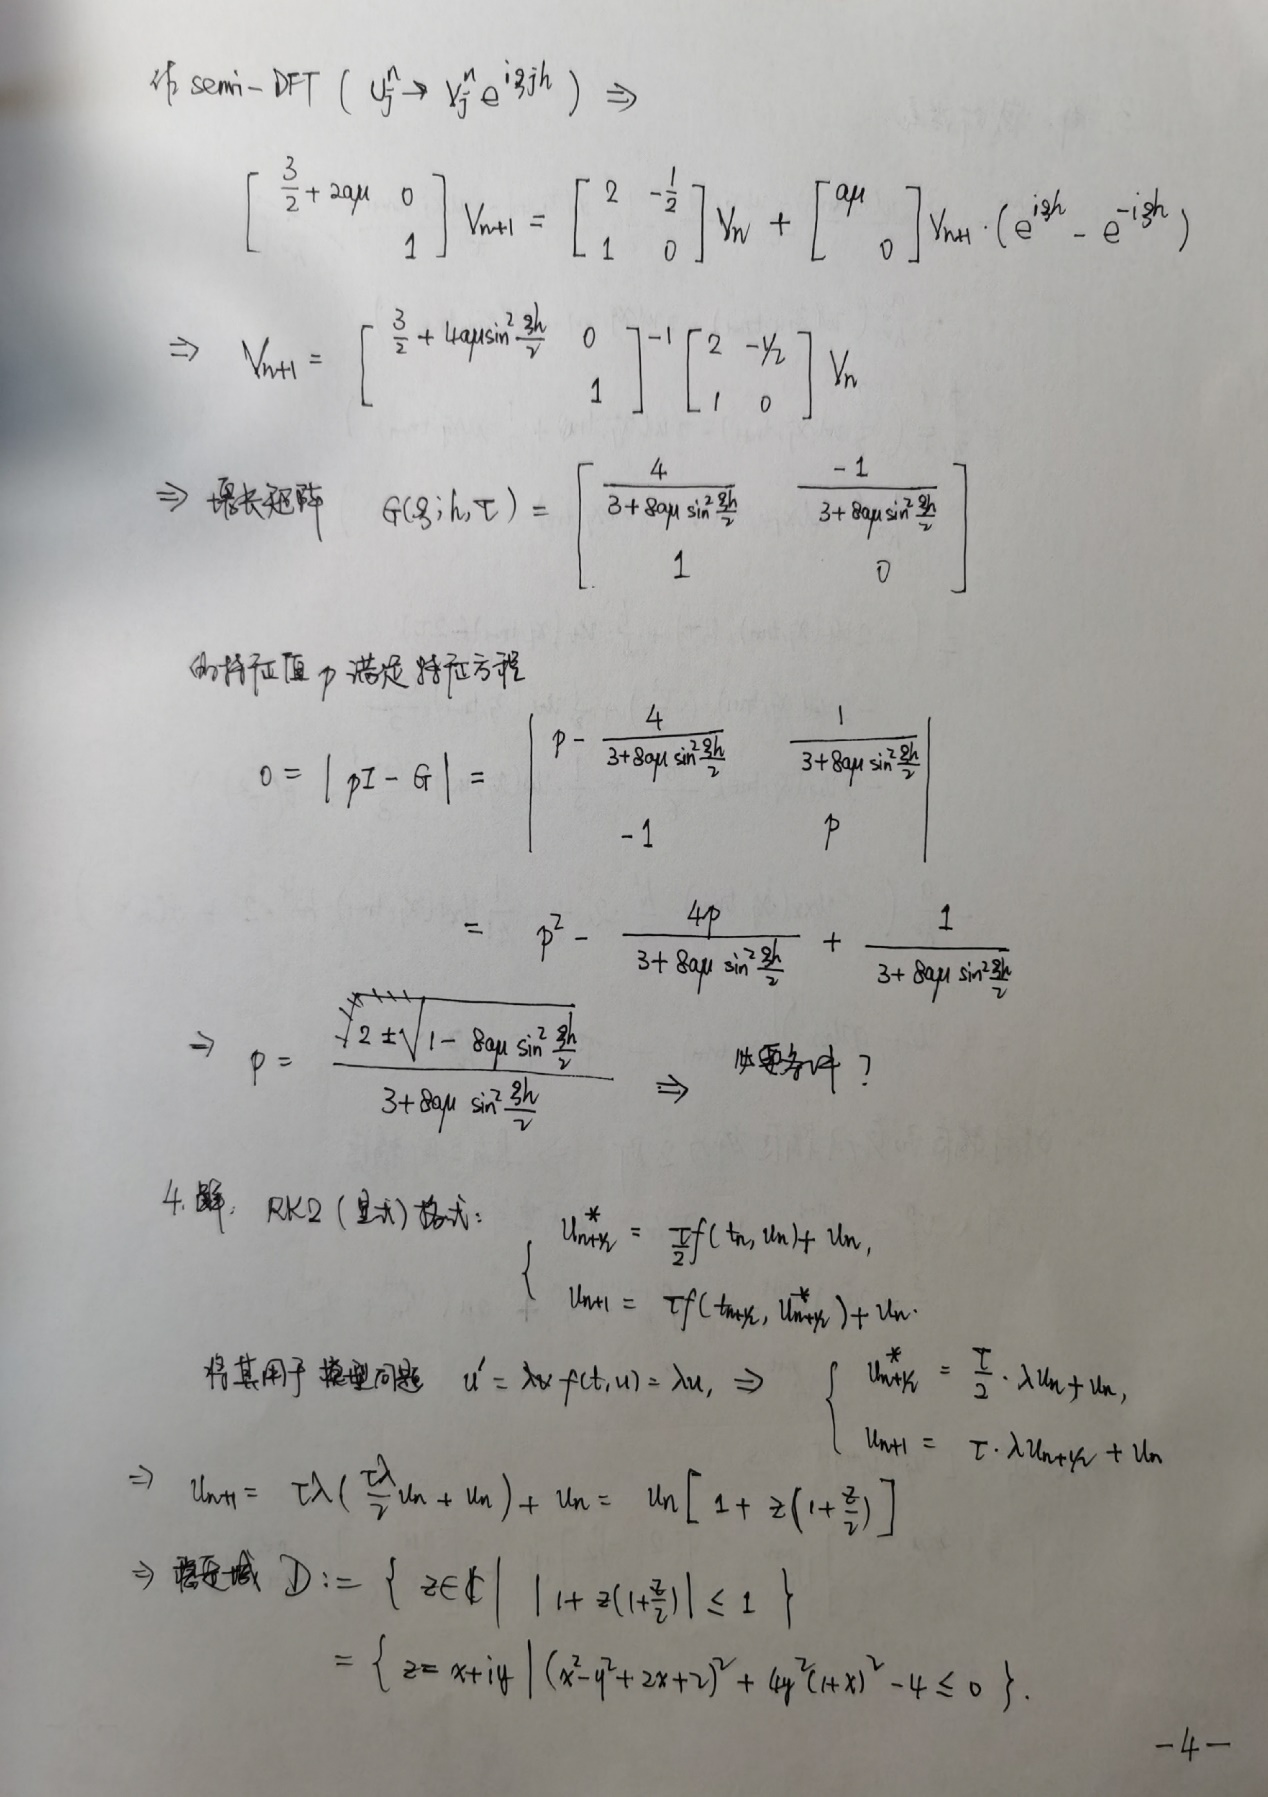 作 semi-DFT ( U_j^n → V_j^n e^{iξjh} ) ⇒
[ 3/2 + 2aμ 0 ; 1 ] V_{n+1} = [ 2 -1/2 ; 1 0 ] V_n + [ aμ ; 0 ] V_{n+1} · ( e^{iξh} - e^{-iξh} )
⇒ V_{n+1} = [ 3/2 + 4aμ sin² ξh/2 0 ; 1 ]^{-1} [ 2 -1/2 ; 1 0 ] V_n
⇒ 增长矩阵 G(ξ; h, τ) = [ 4/(3+8aμ sin² ξh/2) -1/(3+8aμ sin² ξh/2) ; 1 0 ]
的特征值 p 满足特征方程
0 = | pI - G | = | p - 4/(3+8aμ sin² ξh/2) 1/(3+8aμ sin² ξh/2) ; -1 p |
= p² - 4p/(3+8aμ sin² ξh/2) + 1/(3+8aμ sin² ξh/2)
⇒ p = (2 ± √(1 - 8aμ sin² ξh/2))/(3+8aμ sin² ξh/2) ⇒ 必要条件?
4. 解. RK2 (显式) 格式: { u*_{n+1/2} = τ/2 f(t_n, u_n) + u_n,
u_{n+1} = τf(t_{n+1/2}, u*_{n+1/2}) + u_n.
将其用于模型问题 u' = λu f(t,u) = λu, ⇒ { u*_{n+1/2} = τ/2 · λu_n + u_n,
u_{n+1} = τ · λu_{n+1/2} + u_n
⇒ u_{n+1} = τλ( τλ/2 u_n + u_n ) + u_n = u_n [ 1 + z(1 + z/2) ]
⇒ 稳定域 D := { z∈ℂ | |1 + z(1+z/2)| ≤ 1 }
= { z = x+iy | (x²-y²+2x+2)² + 4y²(1+x)² - 4 ≤ 0 }.
-4-